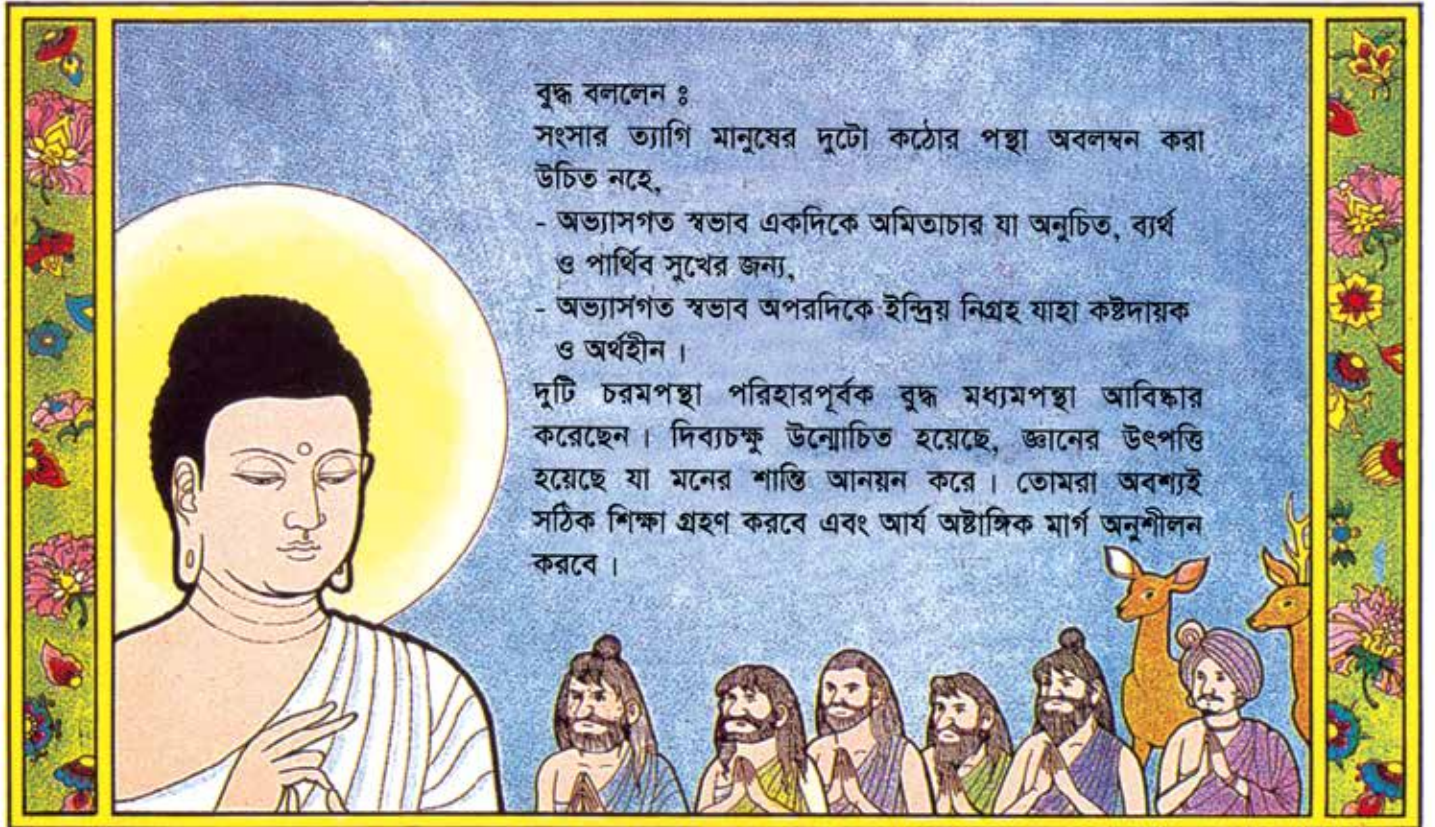 বুদ্ধ বললেন ঃ
সংসার ত্যাগি মানুষের দুটো কঠোর পন্থা অবলম্বন করা
উচিত নহে,
- অভ্যাসগত স্বভাব একদিকে অমিতাচার যা অনুচিত, ব্যর্থ
ও পার্থিব সুখের জন্য,
- অভ্যাসগত স্বভাব অপরদিকে ইন্দ্রিয় নিগ্রহ যাহা কষ্টদায়ক
ও অর্থহীন ।
দুটি চরমপন্থা পরিহারপূর্বক বুদ্ধ মধ্যমপন্থা আবিষ্কার
করেছেন । দিব্যচক্ষু উন্মোচিত হয়েছে, জ্ঞানের উৎপত্তি
হয়েছে যা মনের শান্তি আনয়ন করে । তোমরা অবশ্যই
সঠিক শিক্ষা গ্রহণ করবে এবং আর্য অষ্টাঙ্গিক মার্গ অনুশীলন
করবে ।